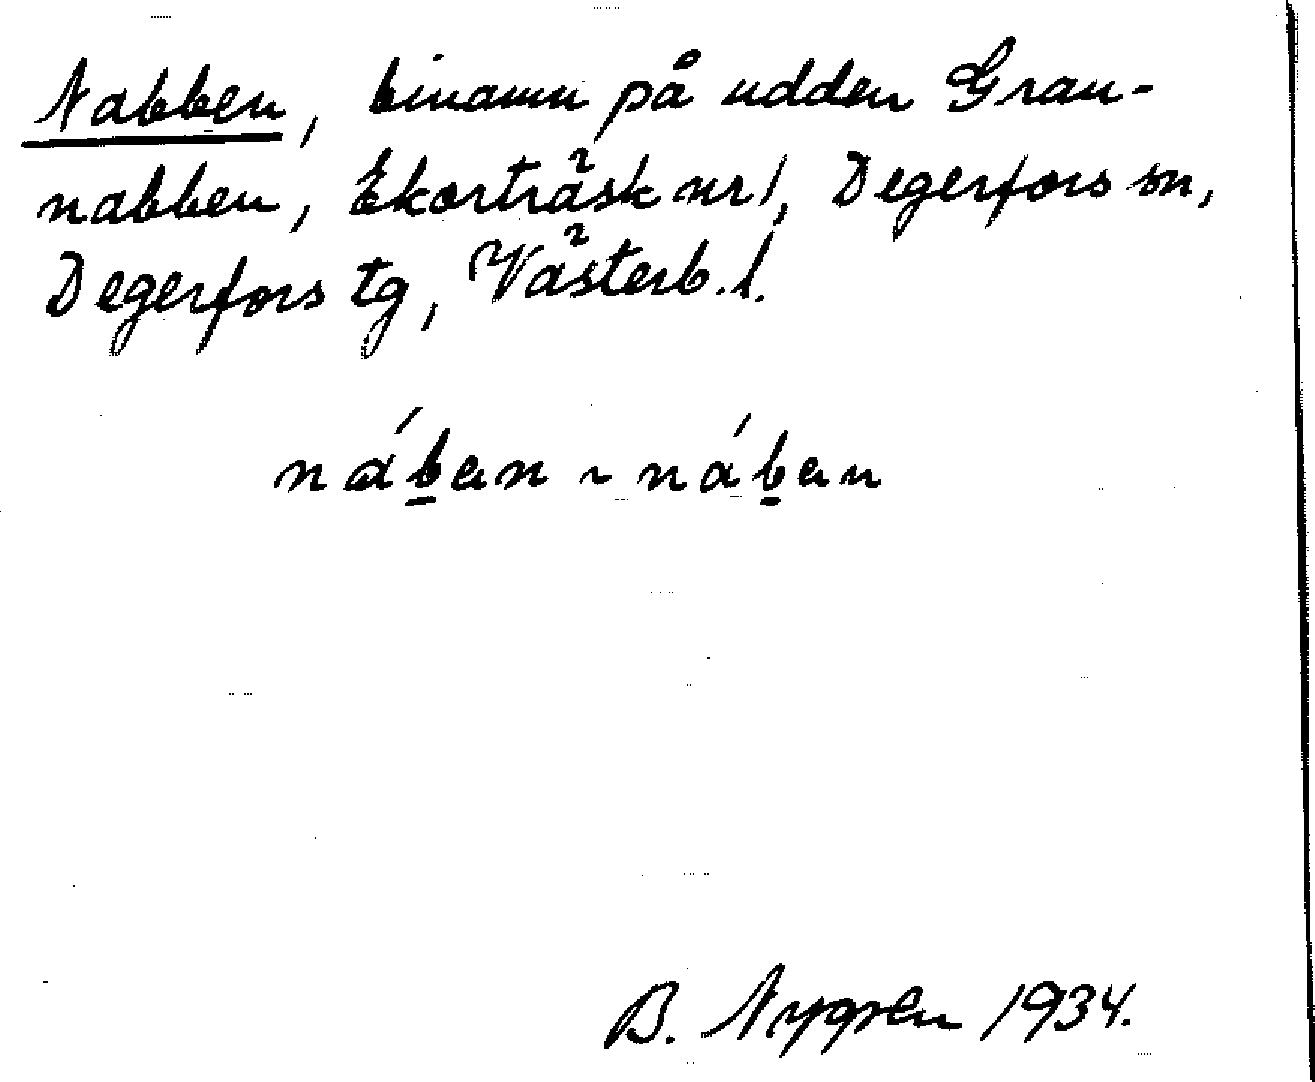 Nabben, binamn på udden Gran-
nabben, Ekorträsk nr 1, Degerfors sn,
Degerfors tg, Västerb. l.
náb̲en ~ náb̲en
B. Nygren 1934.